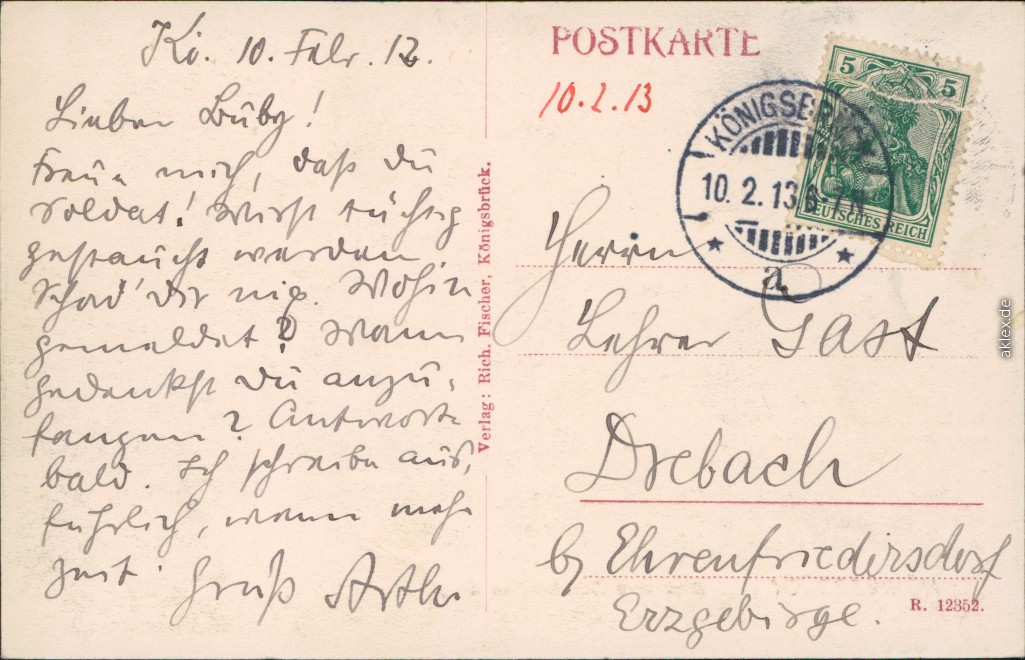 Kö. 10. Febr. 12.
Lieber Büby!
Freue mich, daß du
Soldat! Wirst tüchtig
gestaucht werden.
Schad' dir nix. Wohin
gemeldet? Wann
gedenkst du anzu-
fangen? Antworte
bald. Ich schreibe aus-
führlich, wenn mehr
Zeit. Gruß Arthur
Verlag: Rich. Fischer, Königsbrück.
POSTKARTE
10.2.13
KÖNIGSBRÜCK
10. 2. 13. 6-7 N
a
5 5
DEUTSCHES REICH
Herrn
Lehrer Gast
Drebach
b/ Ehrenfriedersdorf
Erzgebirge.
R. 12352.
aklex.de